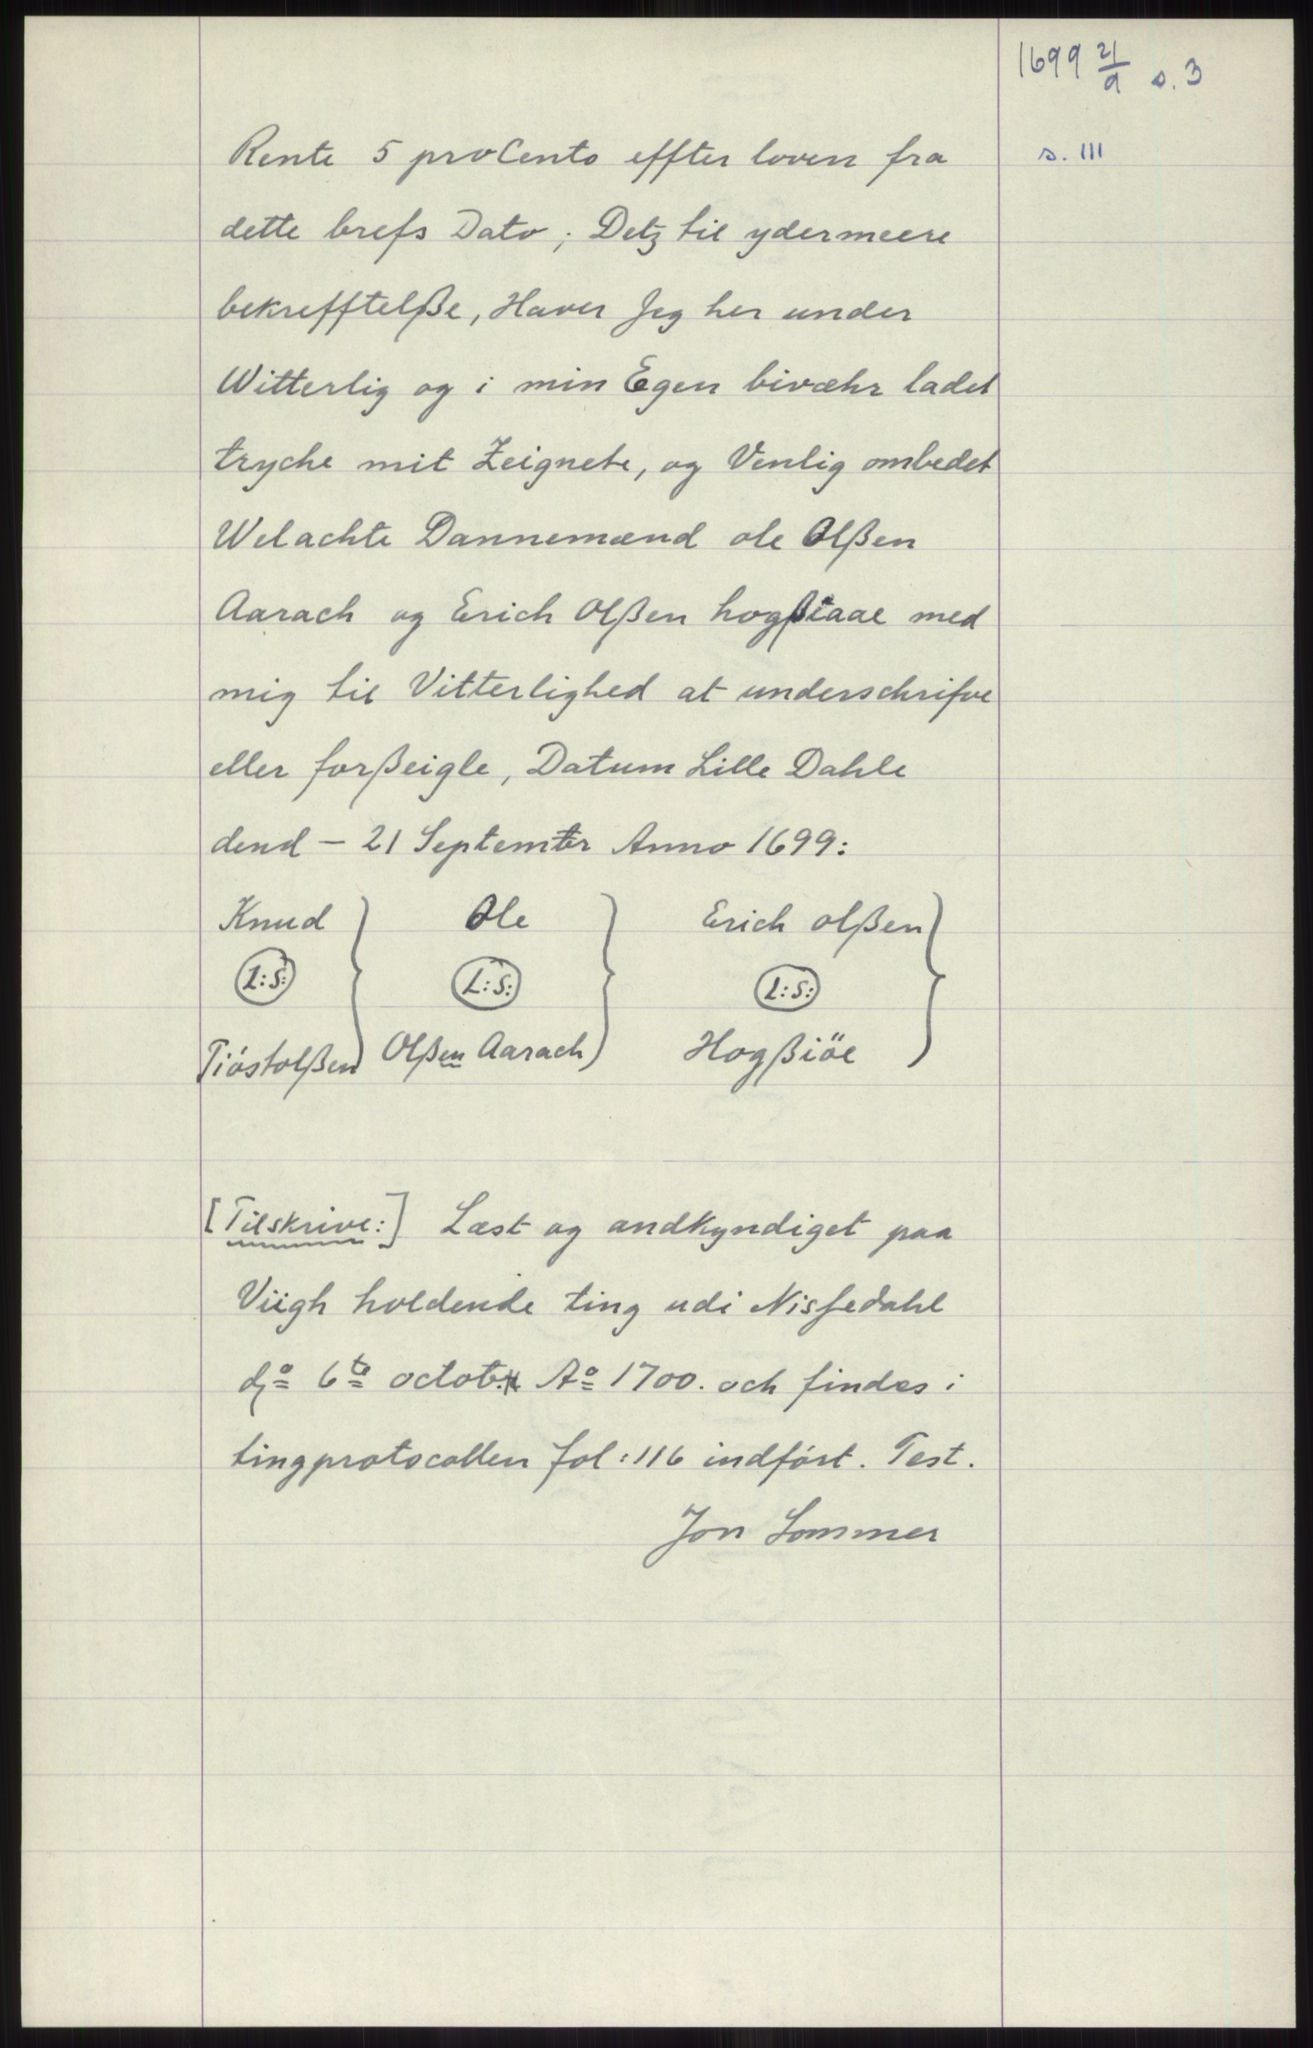 1699 21/9 s. 3
s. 111
Rente 5 proCento effter loven fra
dette brefs Dato; Detz til ydermeere
bekrefftelße, Haver Jeg her under
Witterlig og i min Egen bivæhr ladet
tryche mit Zeignete, og Venlig ombedet
Welachte Dannemænd ole Olßen
Aarach og Erich Olßen hogßiaae med
mig til Vitterlighed at underschrifve
eller forßeigle, Datum Lille Dahle
dend - 21 Septembr Anno 1699:
Knud } Ole } Erich olßen }
L:S: L:S: L:S:
Tióstolßen Olßen Aarach Hogßiöe
[Tilskrive:] Læst og andkyndiget paa
Viigh holdende ting udi Nissedahl
dº 6te octob. Aº 1700. och findes i
tingprotocollen fol: 116 indfórt. Test.
Jon Sommer